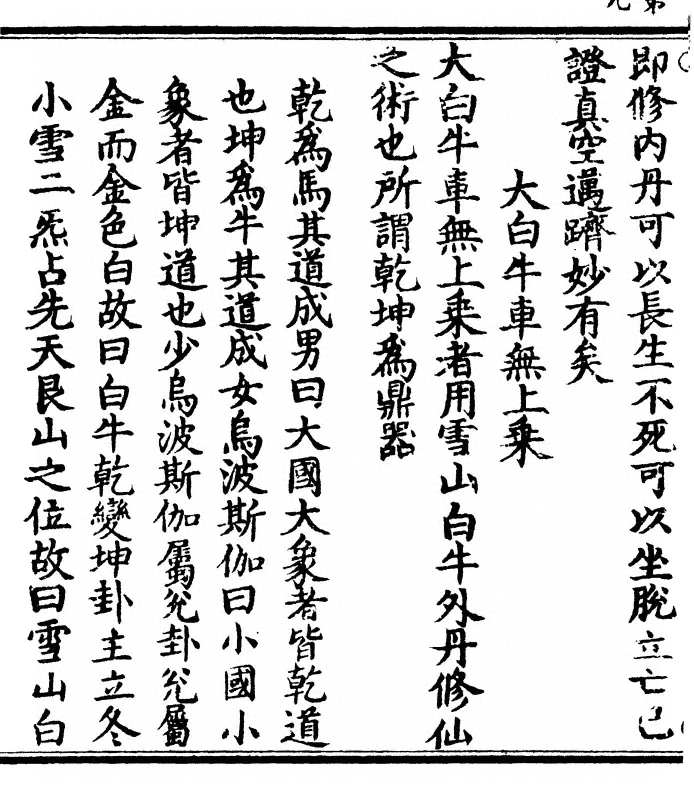 即修内丹可以長生不死可以坐脫立亡已
證真空邁躋妙有矣
大白牛車無上乘
大白牛車無上乘者用雪山白牛外丹修仙
之術也所謂乾坤為鼎器
乾為馬其道成男曰大國大象者皆乾道
也坤為牛其道成女烏波斯伽曰小國小
象者皆坤道也少烏波斯伽屬兊卦兊屬
金而金色白故曰白牛乾變坤卦主立冬
小雪二炁占先天艮山之位故曰雪山白